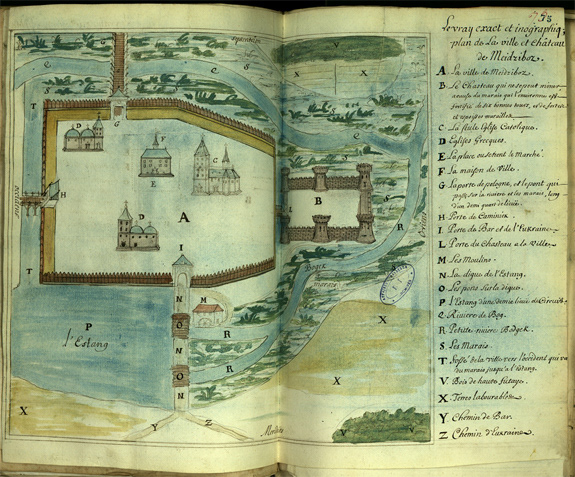 73
Le vray exact et inographiq
plan de La ville et chateau
de Meidziboz.
A La ville de Meidziboz.
B Le Chasteau qui ne se peut miner
a cause du marais qui l'environne est
fortifié de six bonnes tours, et de fortes
et epaisses murailles
C La seule Eglise Catolique.
D Eglises Grecques.
E La place ou se tient le Marché.
F La maison de Ville.
G La porte de pologne, et le pont qui
passe sur la riviere et les marais, long
d'un demi quart de lieüe.
H Porte de Caminiec
I. Porte de Bar et de l'Eukraine.
L Porte du Chasteau a la Ville
M Les Moulins.
N La digue de l'Estang.
O Les pons sur la digue.
P l'Estang d'une demie lieüe de Circuit.
Q Riviere de Bog.
R Petitte riviere Bodzek.
S Les Marais.
T Fossé de la ville vers l'occident qui va
du marais jusqu'a l'Estang.
V Bois de haute futaye.
X Terres labourables.
Y Chemin de Bar.
Z Chemin d'Eukraine.
Septentrion
V V
X X
S
T
G
D
V
E
C
H
D
A
B
L
S
R
I
Bozek
marais
N
M
O
R
N
O
N
R
P
l'Estang
T
X
X
X
Y
Z
V V